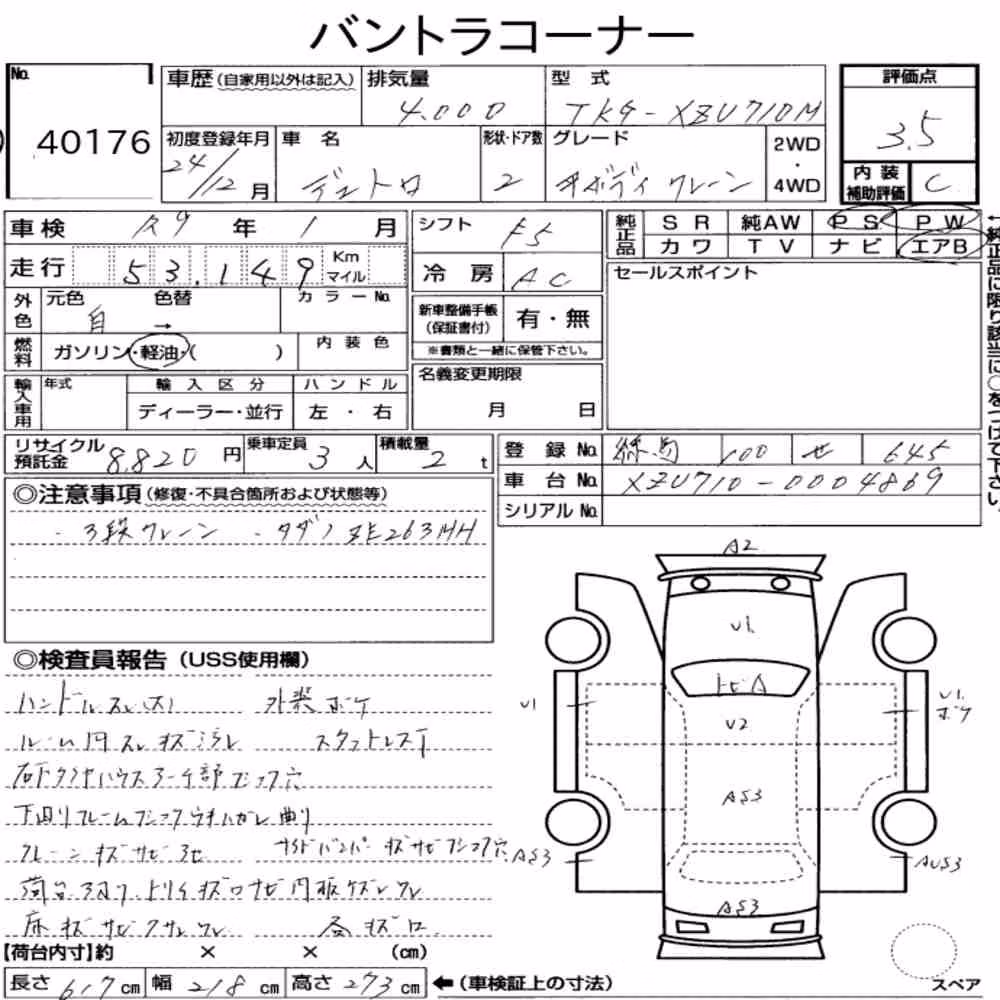 バントラコーナー
No. 40176
車歴(自家用以外は記入)
排気量 4.000
型式 TKG-XZU710M
初度登録年月 24/12月
車名 デュトロ
形状・ドア数 2
グレード
クレーン
2WD・4WD
評価点 3.5
内装補助評価 C
車検 R9年1月
シフト F5
走行 53.149 Km マイル
冷房 AC
純正品 SR 純AW PS PW
カワ TV ナビ エアB
←純正品に限り該当に○をつけて下さい。
セールスポイント
外色 元色 色替 カラーNo.
白 →
燃料 ガソリン・軽油・( )
内装色
新車整備手帳(保証書付) 有・無
※書類と一緒に保管下さい。
輸入車用 年式 輸入区分 ハンドル
ディーラー・並行 左・右
名義変更期限
月 日
リサイクル預託金 8.820円
乗車定員 3人
積載量 2t
登録No. 練馬 100 せ 645
車台No. XZU710-0004869
シリアルNo.
◎注意事項(修復・不具合箇所および状態等)
・3段クレーン ・タダノ ZE263MH
◎検査員報告(USS使用欄)
ハンドルスレ(大) 外装ボケ
ルーム内スレキズ汚レ
右下タイヤハウスアーチ部フショク穴
下廻りフレームフショク 曲り
クレーンキズサビ サイドバンパーキズサビフショク穴
床キズサビ 各キズ
A2
V1
トビA
V2
AS3
AS3
V1
V1.ボケ
AS3
AUS3
スペア
【荷台内寸】約 × × (cm)
長さ 617cm 幅 218cm 高さ 273cm ←(車検証上の寸法)